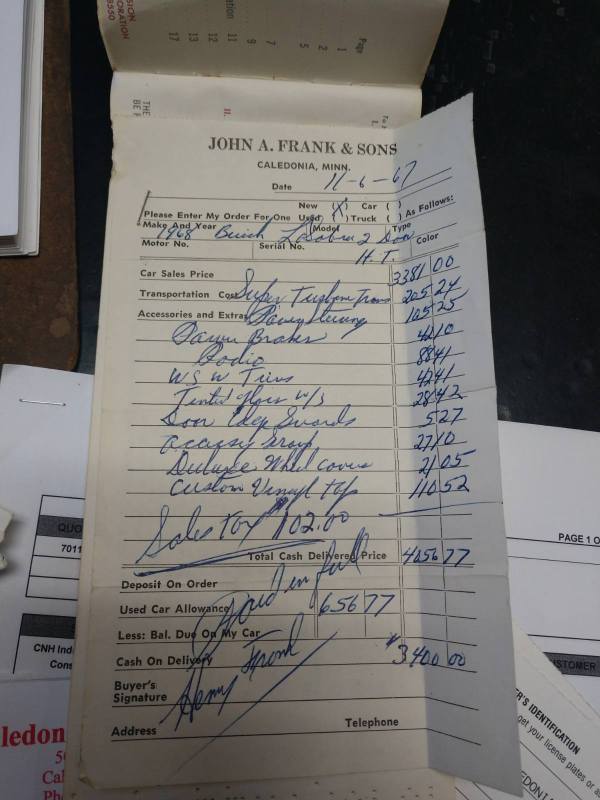 SION
ORPORATION
55550
ration
Page
1
2
5
7
9
11
12
13
17
THE
BE F
II.
JOHN A. FRANK & SONS
CALEDONIA, MINN.
Date 11-6-67
New (X) Car ( )
Please Enter My Order For One Used ( ) Truck ( ) As Follows:
Make And Year Model Type
1968 Buick LeSabre 2 Door
Motor No. Serial No. H.T. Color
Car Sales Price 3381 00
Transportation Cost Super Turbine Trans 205 24
Accessories and Extras Power Steering 105 25
Power Brakes 42 10
Radio 88 41
W S W Tires 42 41
Tinted glass w/s 28 42
Door Edge Guards 5 27
accessy Group 27 10
Deluxe Wheel covers 21 05
Custom Vinyl top 110 52
Sales tax 102.00
Total Cash Delivered Price 4056 77
Deposit On Order
Paid in full
Used Car Allowance 656 77
Less: Bal. Due On My Car
Cash On Delivery $3400 00
Buyer's
Signature Henry Frank
Address Telephone
QUO
7011
PAGE 1 O
CNH Ind
Cons
STOMER
ledon
50
Cal
Ph
R'S IDENTIFICATION
get your license plates or
EDONI